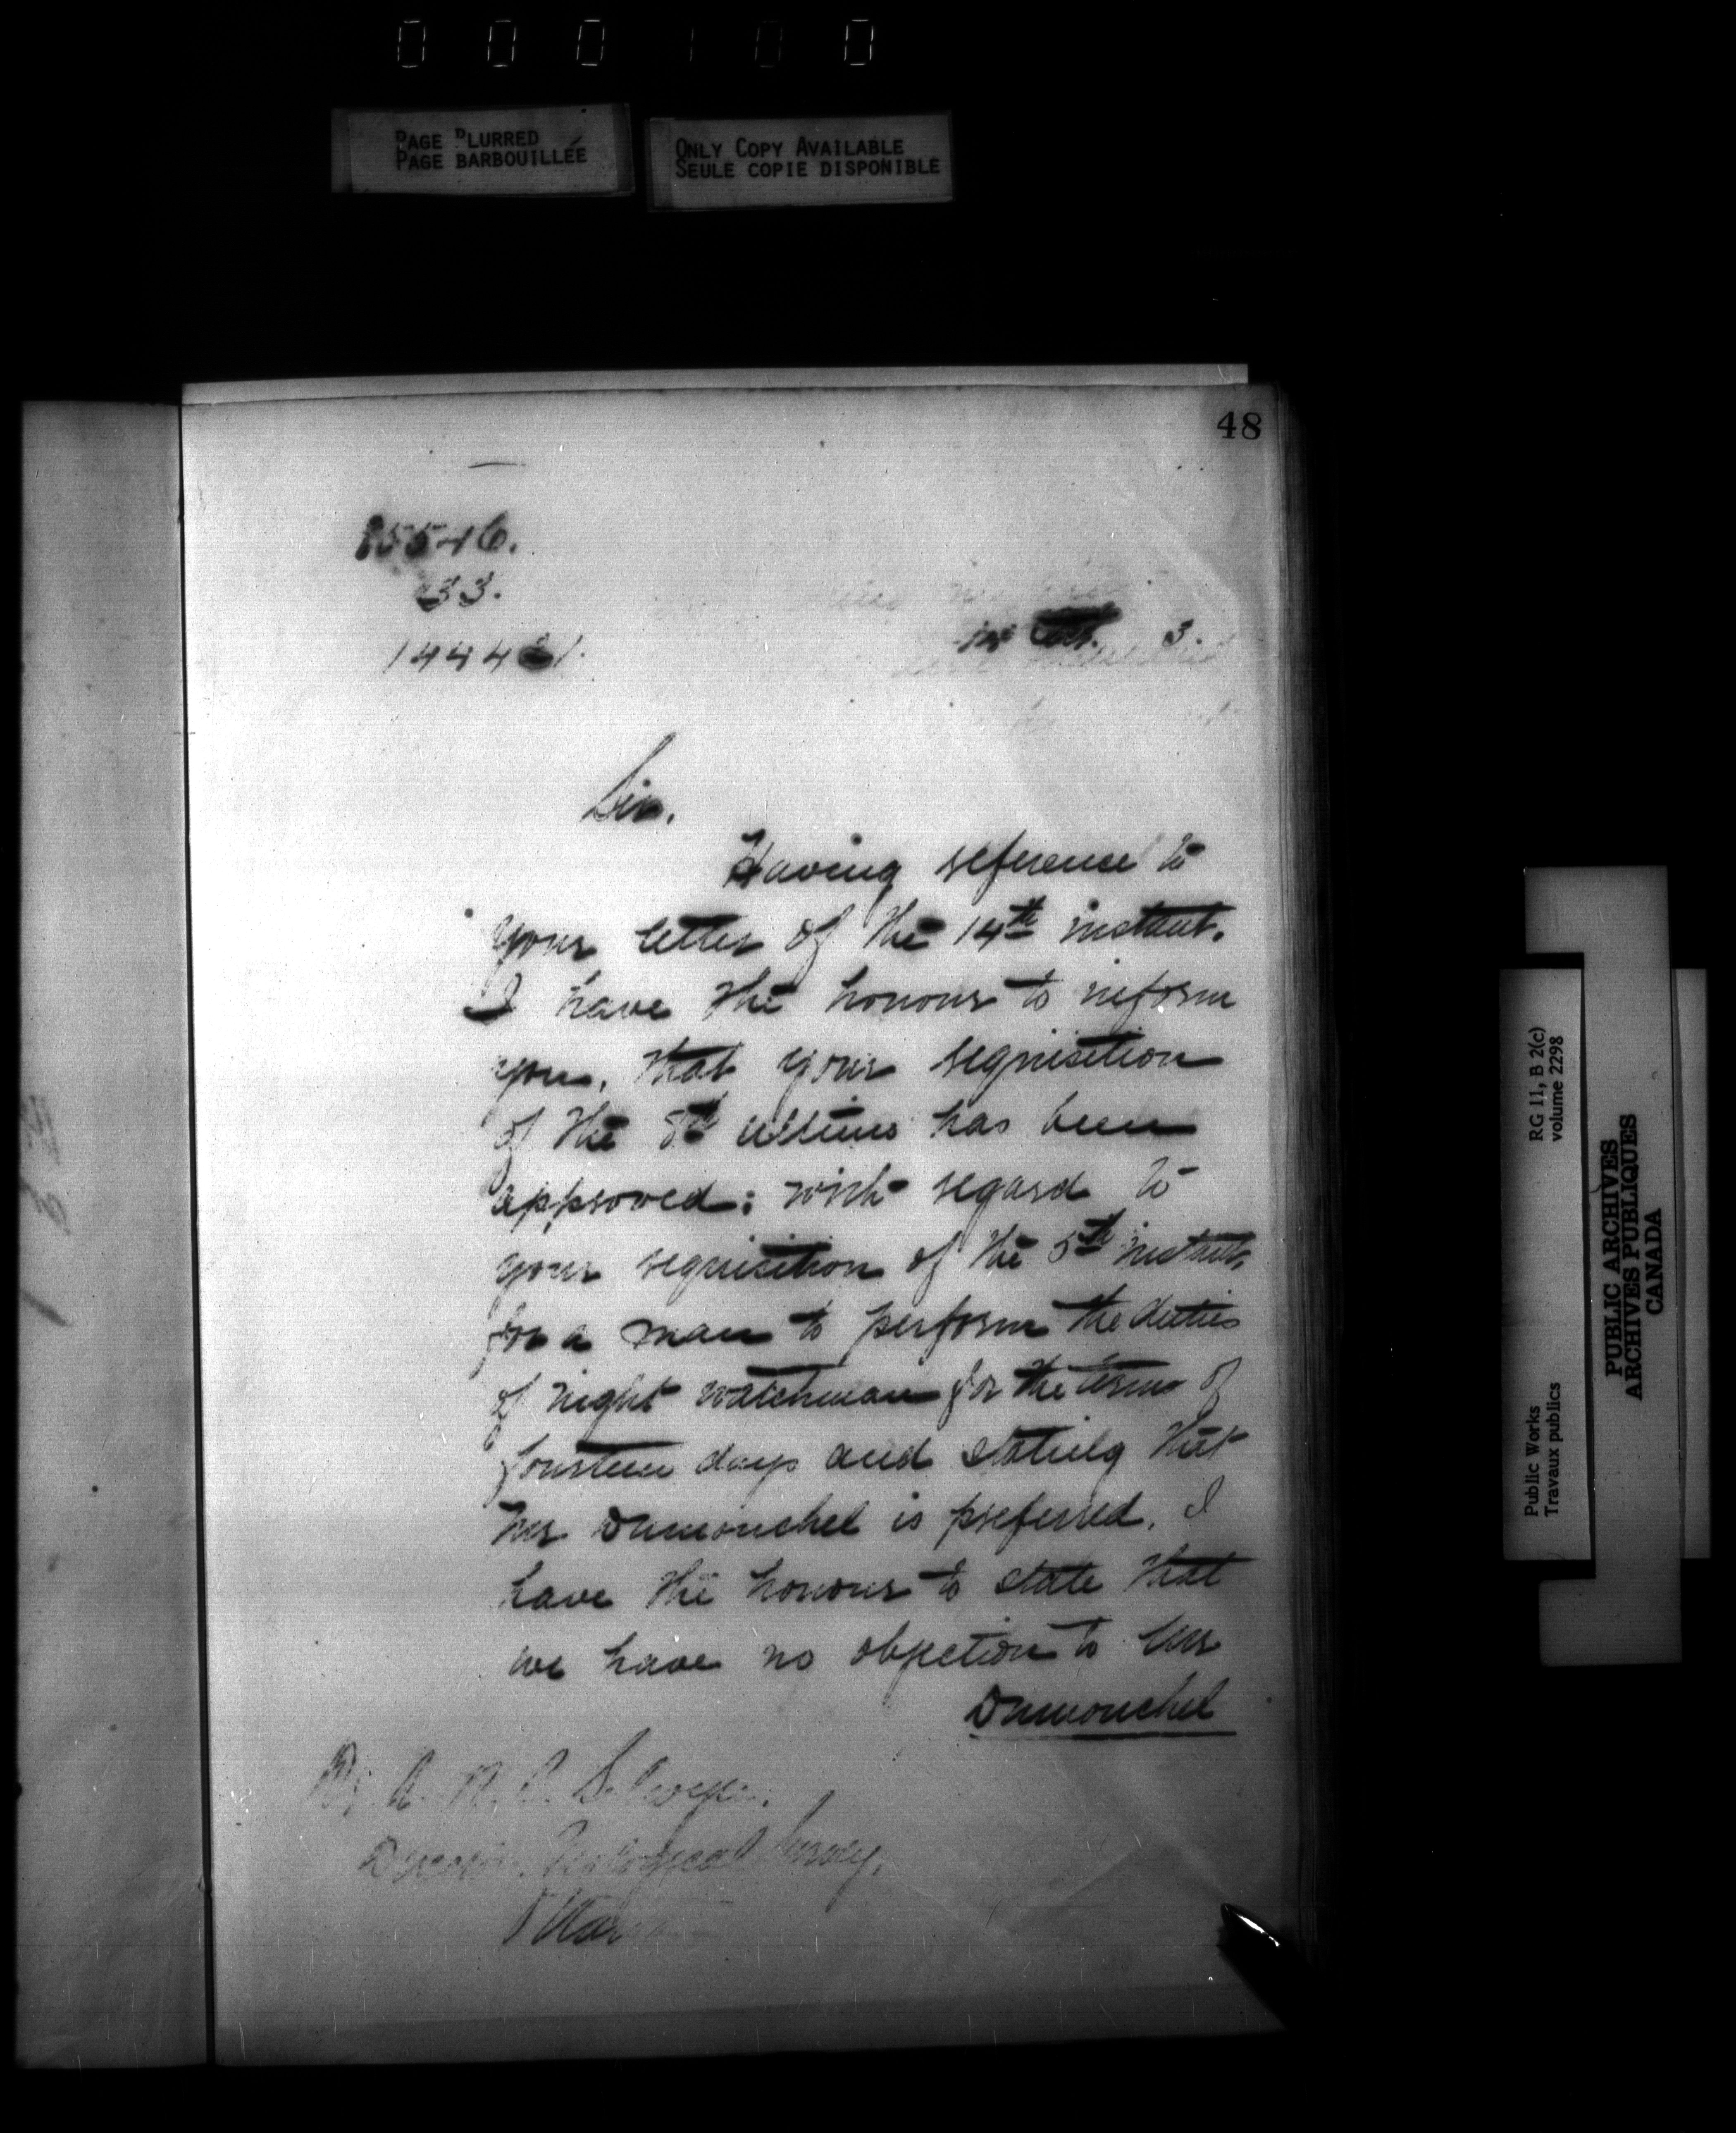 000100
PAGE BLURRED
PAGE BARBOUILLÉE
ONLY COPY AVAILABLE
SEULE COPIE DISPONIBLE
48
33.
3.
Sir.
Having reference to
your letter of the 14th instant.
I have the honour to inform
you, that your requisition
of the 8th ultimo has been
approved: with regard to
your requisition of the 5th instant,
for a man to perform the duties
of night watchman for the term of
fourteen days and stating that
Mr Dumouchel is preferred, I
have the honour to state that
we have no objection to Mr
Dumouchel
Dr. A. R. C. Selwyn.
Director, Geological Survey,
Ottawa
RG 11, B 2(c)
volume 2298
Public Works
Travaux publics
PUBLIC ARCHIVES
ARCHIVES PUBLIQUES
CANADA